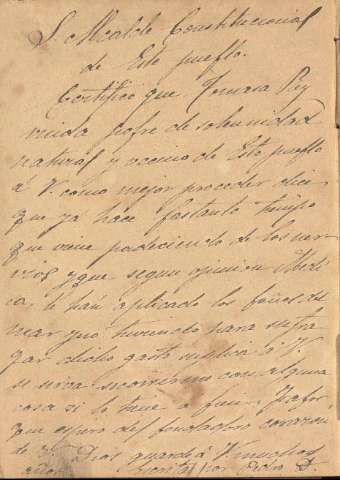 S. Alcalde Constitucional
de Este pueblo.
Certifico que Tomasa Rey
viuda pofre de solemnidad
natural y vecina de Este pueblo
á V. como mejor proceder dice
que yá hace fastante tiempo
que viene padeciendo de los ner
vios y que segun opinion Medi
ca, le han aplicado los faños del
mar y no tuviendo para sufra
gar dicho gasto suplica á V.
se sirva socorrerme con alguna
cosa si lo tiene a fien. Pafor
que espero del fondadoso corazon
de V. Dios guarde á V. muchos
por Pedro D.